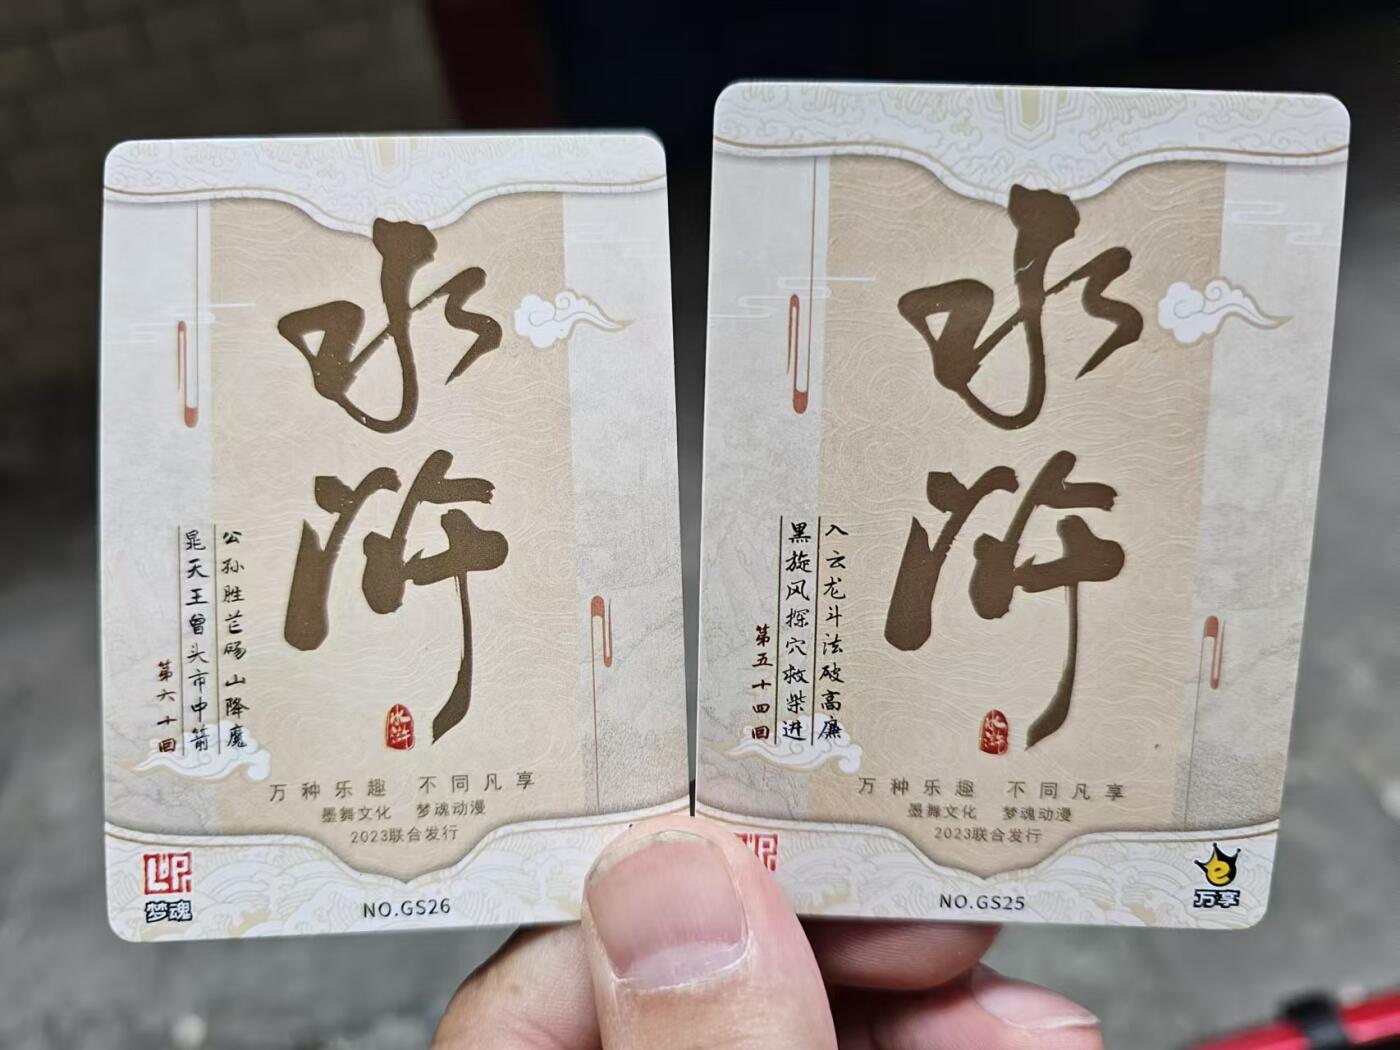 水浒
公孙胜芒砀山降魔
晁天王曾头市中箭
第六十回
水浒
万种乐趣 不同凡享
墨舞文化 梦魂动漫
2023联合发行
梦魂
NO.GS26
水浒
入云龙斗法破高廉
黑旋风探穴救柴进
第五十四回
水浒
万种乐趣 不同凡享
墨舞文化 梦魂动漫
2023联合发行
NO.GS25
e
万享